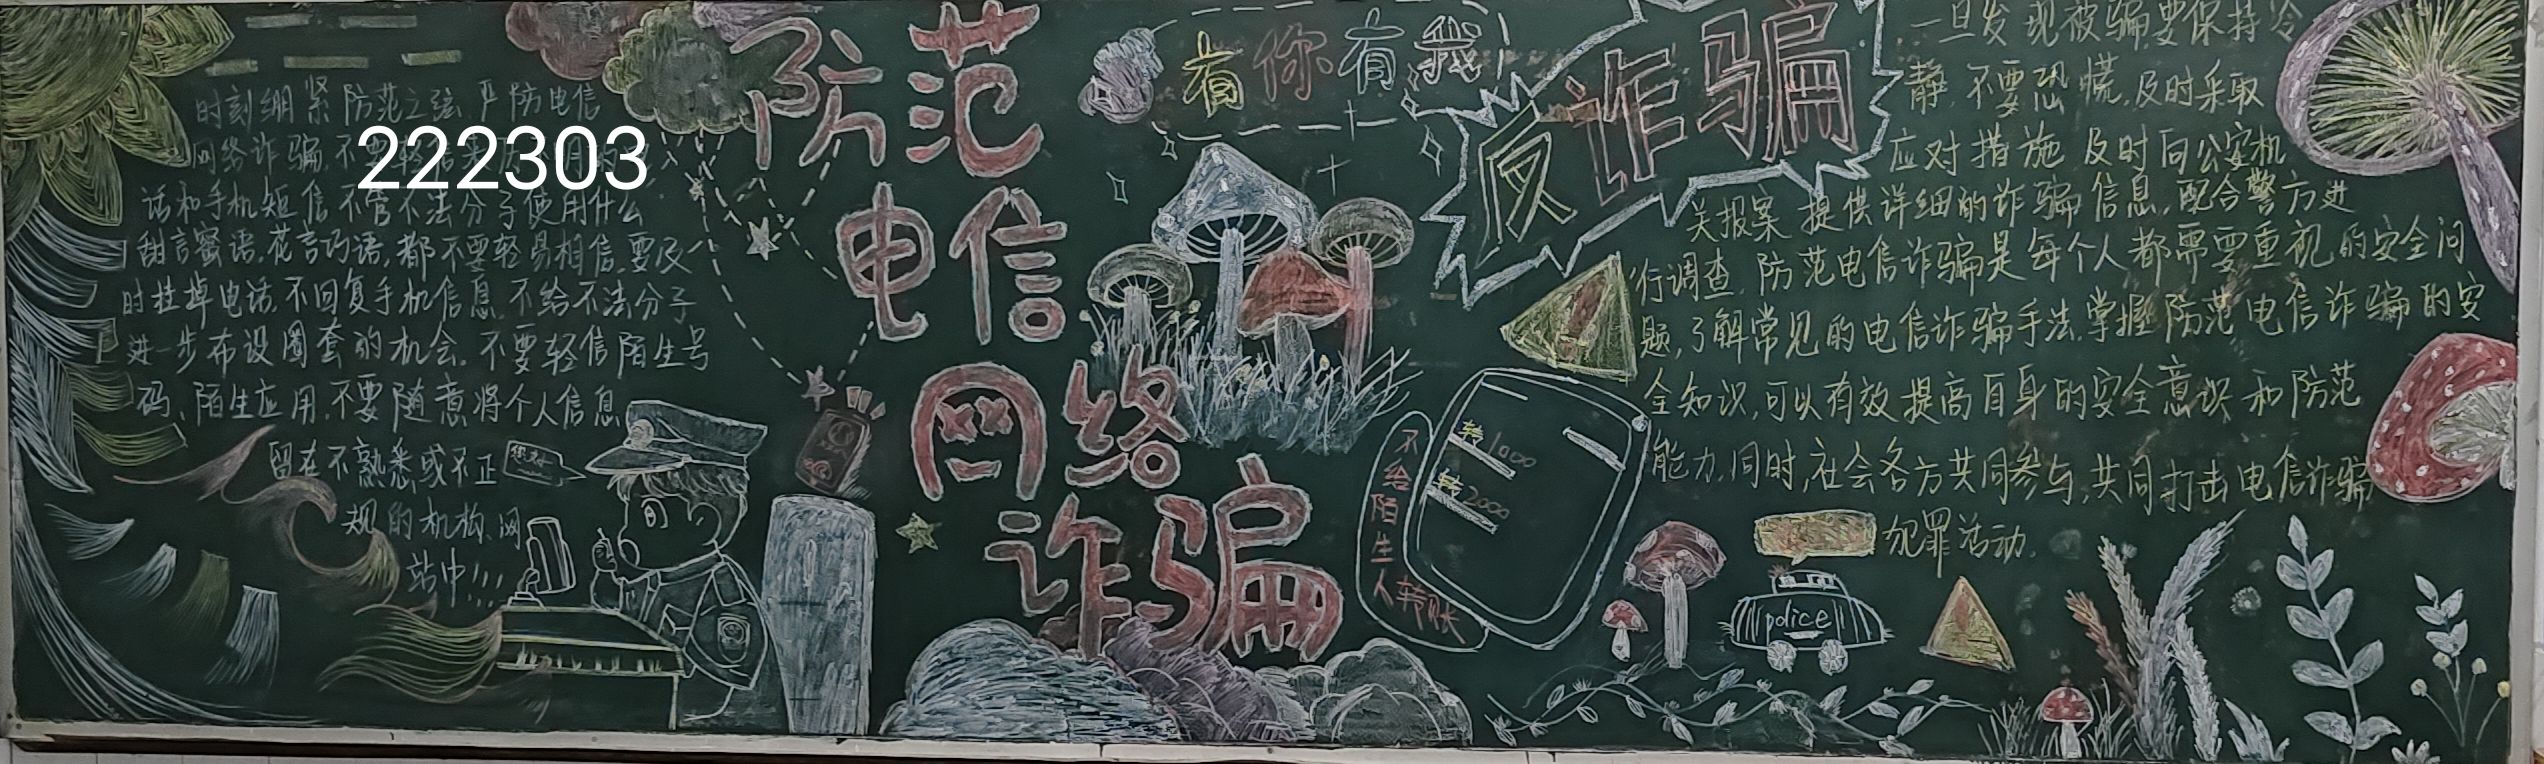 时刻绷紧防范之弦,严防电信
网络诈骗,不要轻信
222303
话和手机短信不管不法分子使用什么
甜言蜜语,花言巧语,都不要轻易相信,要及
时挂掉电话,不回复手机信息,不给不法分子
进一步布设圈套的机会。不要轻信陌生号
码、陌生应用,不要随意将个人信息
留在不熟悉或不正
规的机构、网
站中!!!
防范
电信
网络
诈骗
有你有我
反诈骗
不给陌生人转账
转1000
转2000
一旦发现被骗,要保持冷
静,不要恐慌,及时采取
应对措施 及时向公安机
关报案 提供详细的诈骗信息,配合警方进
行调查,防范电信诈骗是每个人都需要重视的安全问
题,了解常见的电信诈骗手法,掌握防范电信诈骗的安
全知识,可以有效提高自身的安全意识和防范
能力,同时,社会各方共同参与,共同打击电信诈骗
犯罪活动。
police